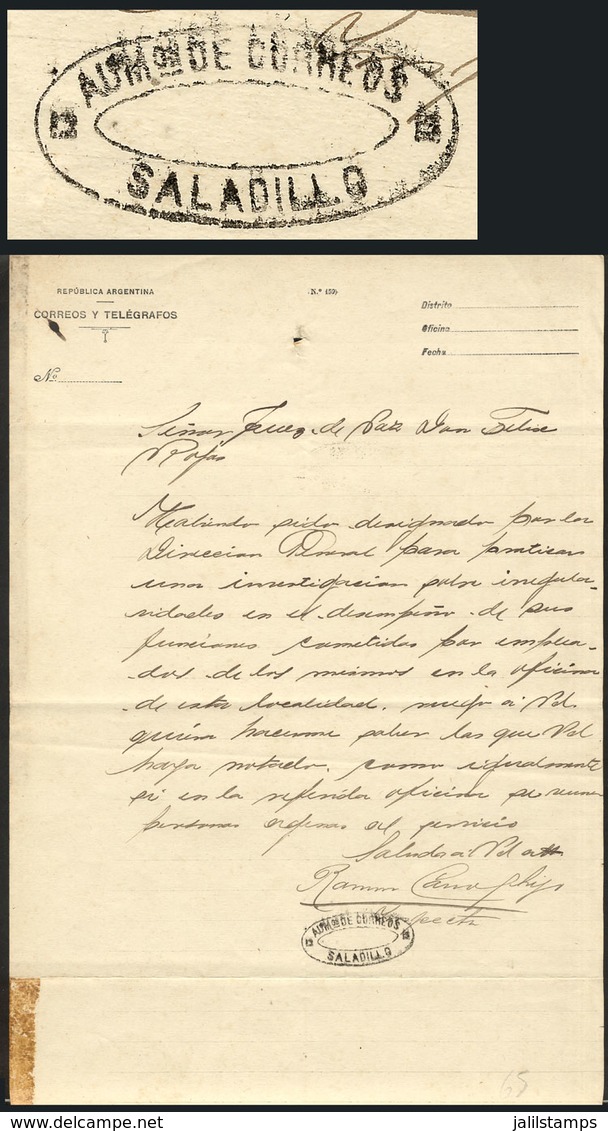 ADMon DE CORREOS
SALADILLO
REPÚBLICA ARGENTINA
CORREOS Y TELÉGRAFOS
N.º
(N.º 159)
Distrito
Oficina
Fecha
Señor Juez de Paz Don Felix
Rojas
Habiendo sido designado por la
Direccion General para practicar
una investigacion sobre irregula-
ridades en el desempeño de sus
funciones cometidas por emplea-
dos de los mismos en la oficina
de esta localidad, ruego a Vd.
quiera hacerme saber las que Vd
haya notado, como igualmente
si en la referida oficina se reunen
personas ajenas al servicio
Saluda a Vd atte
Ramon Cano
Inspector
ADMon DE CORREOS
SALADILLO
65
jalilstamps